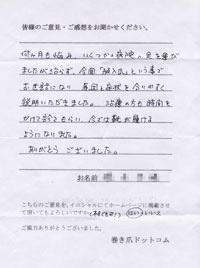 皆様のご意見・ご感想をお聞かせください。
何か月も悩み、いくつかの病院へ足を運び
ましたが治らず、今回「陥入爪」という事で
お世話になり 原因と症状を分りやすく
説明いただきました。治療の方も時間を
かけて診てもらい、今では靴が履ける
ようになりました。
ありがとうございました。
お名前
こちらのご意見を、イニシャルにてホームページに掲載させ
て頂いてもよろしいですか はい・いいえ
ご協力ありがとうございました。
巻き爪ドットコム